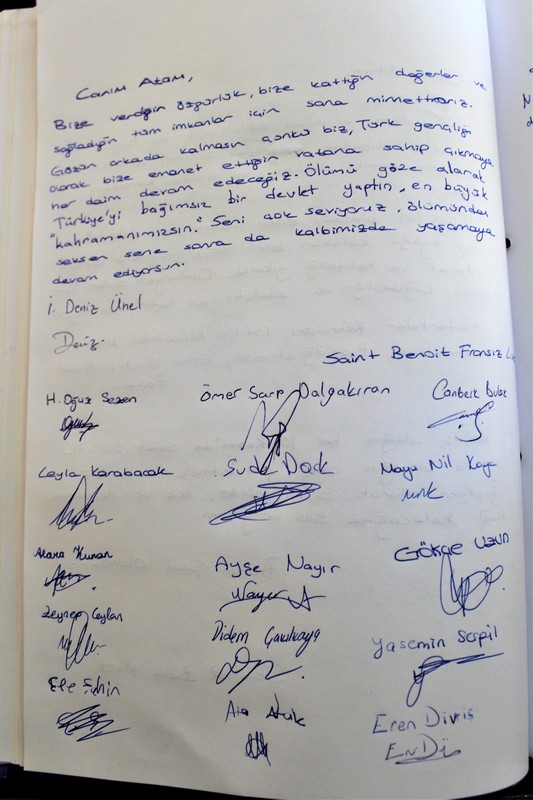 Canım Atam,
Bize verdiğin özgürlük, bize kattığın değerler ve
sağladığın tüm imkanlar için sana minnettarız.
Gözün arkada kalmasın çünkü biz, Türk gençliği
olarak bize emanet ettiğin vatana sahip çıkmaya
her daim devam edeceğiz. Ölümü göze alarak
Türkiye'yi bağımsız bir devlet yaptın, en büyük
"kahramanımızsın." Seni çok seviyoruz, ölümünden
seksen sene sonra da kalbimizde yaşamaya
devam ediyorsun.
İ. Deniz Ünel
Deniz.
Saint Benoit Fransız
H. Oğuz Sezen Ömer Sarp Dalgakıran Canberk
Oğuz
Leyla Karabacak Sude Maya Nil Kaya
mnk
Kunan Ayşe Nayır Gökçe Uzun
Nayır
Zeynep Ceylan Didem Çavuşkaya Yasemin Serpil
Efe Şahin Ata Eren
EnDi